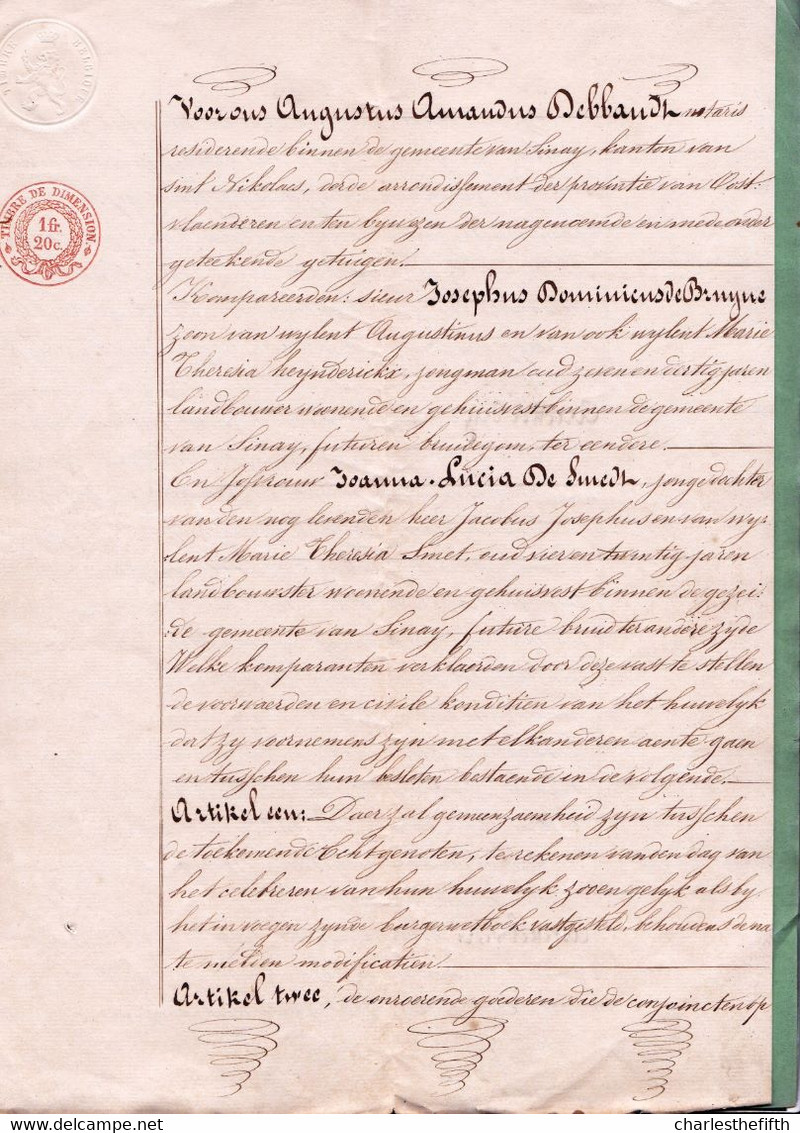 TIMBRE DE DIMENSION.
1 fr.
20 c.
Voor ons Augustus Amandus Debbaudt notaris
residerende binnen de gemeente van Sinay, kanton van
sint Nikolaes, derde arrondissement der provintie van Oost:
vlaenderen en ten bywezen der nagenoemde en mede onder
geteekende getuigen.
Kompareerden: sieur Josephus Dominicus de Bruyne
zoon van wylent Augustinus en van ook wylent Marie
Theresia Heynderickx, jongman oud zeven en dertig jaren
landbouwer woonende en gehuisvest binnen de gemeente
van Sinay, futuren bruidegom, ter eendere.
En Jofvrouw Joanna Lucia De Smedt, jongedochter
van den nog levenden heer Jacobus Josephus en van wy:
lent Marie Theresia Smet, oud vier en twintig jaren
landbouwster woonende en gehuisvest binnen de gezei:
:de gemeente van Sinay, future bruid ter andere zyde
Welke komparanten verklaerden door deze vast te stellen
de voorwaerden en civile konditien van het huwelyk
dat zy voornemens zyn met elkanderen aen te gaen
en tusschen hun besloten bestaende in de volgende.
Artikel een: Daer zal gemeenzaemheid zyn tusschen
de toekomende Echtgenoten, te rekenen van den dag van
het celebreren van hun huwelyk zooven gelyk als by
het in voegen zynde burgerwetboek vastgesteld, behoudens de na
te melden modificatien.
Artikel twee, de onroerende goederen die de conjoincten op
charlesthefifth
www.delcampe.net